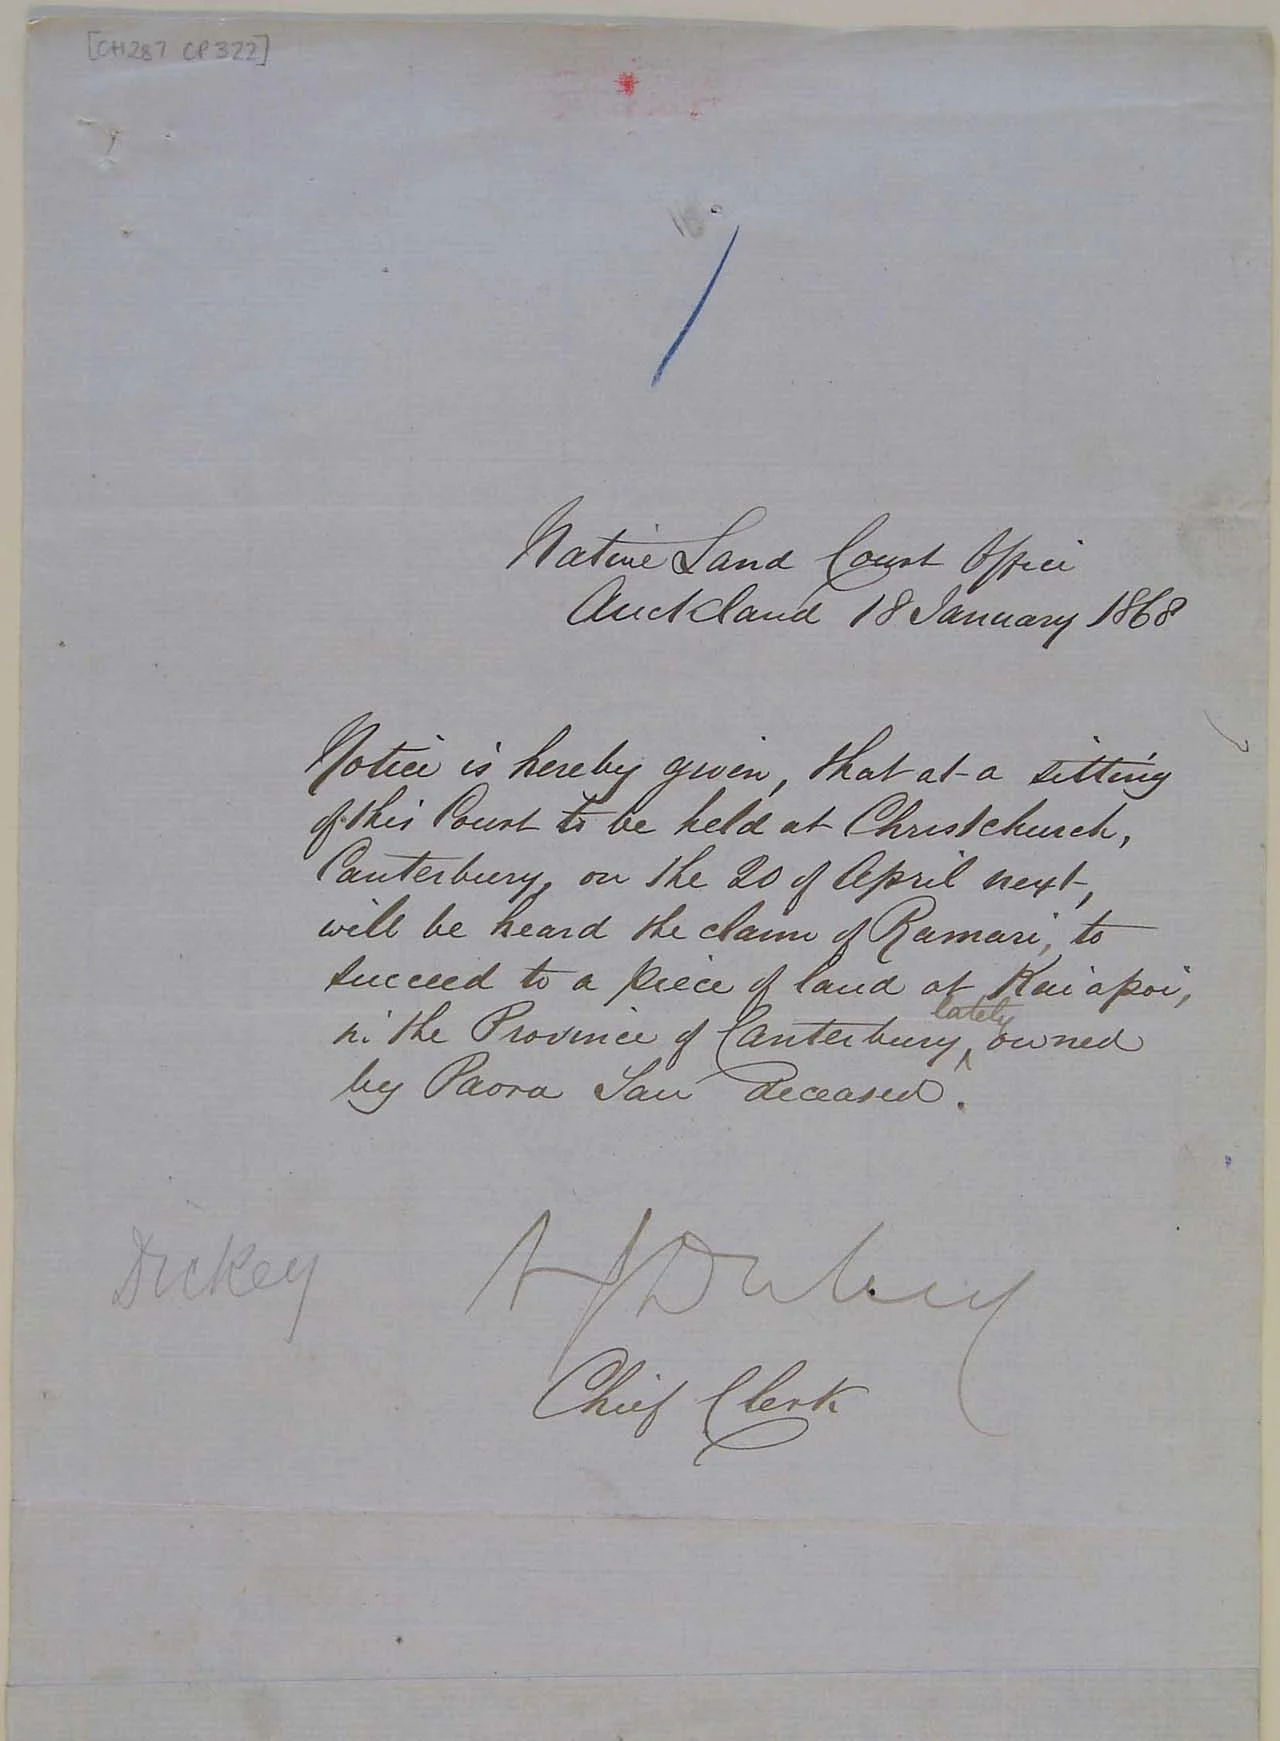 [CH287 CP322]
Native Land Court Office
Auckland 18 January 1868
Notice is hereby given, that at a sitting
of this Court to be held at Christchurch,
Canterbury, on the 20 of April next,
will be heard the claim of Ramari, to
succeed to a piece of land at Kaiapoi,
in the Province of Canterbury, lately owned
by Paora Tau deceased.
Dickey
A J Dickey
Chief Clerk